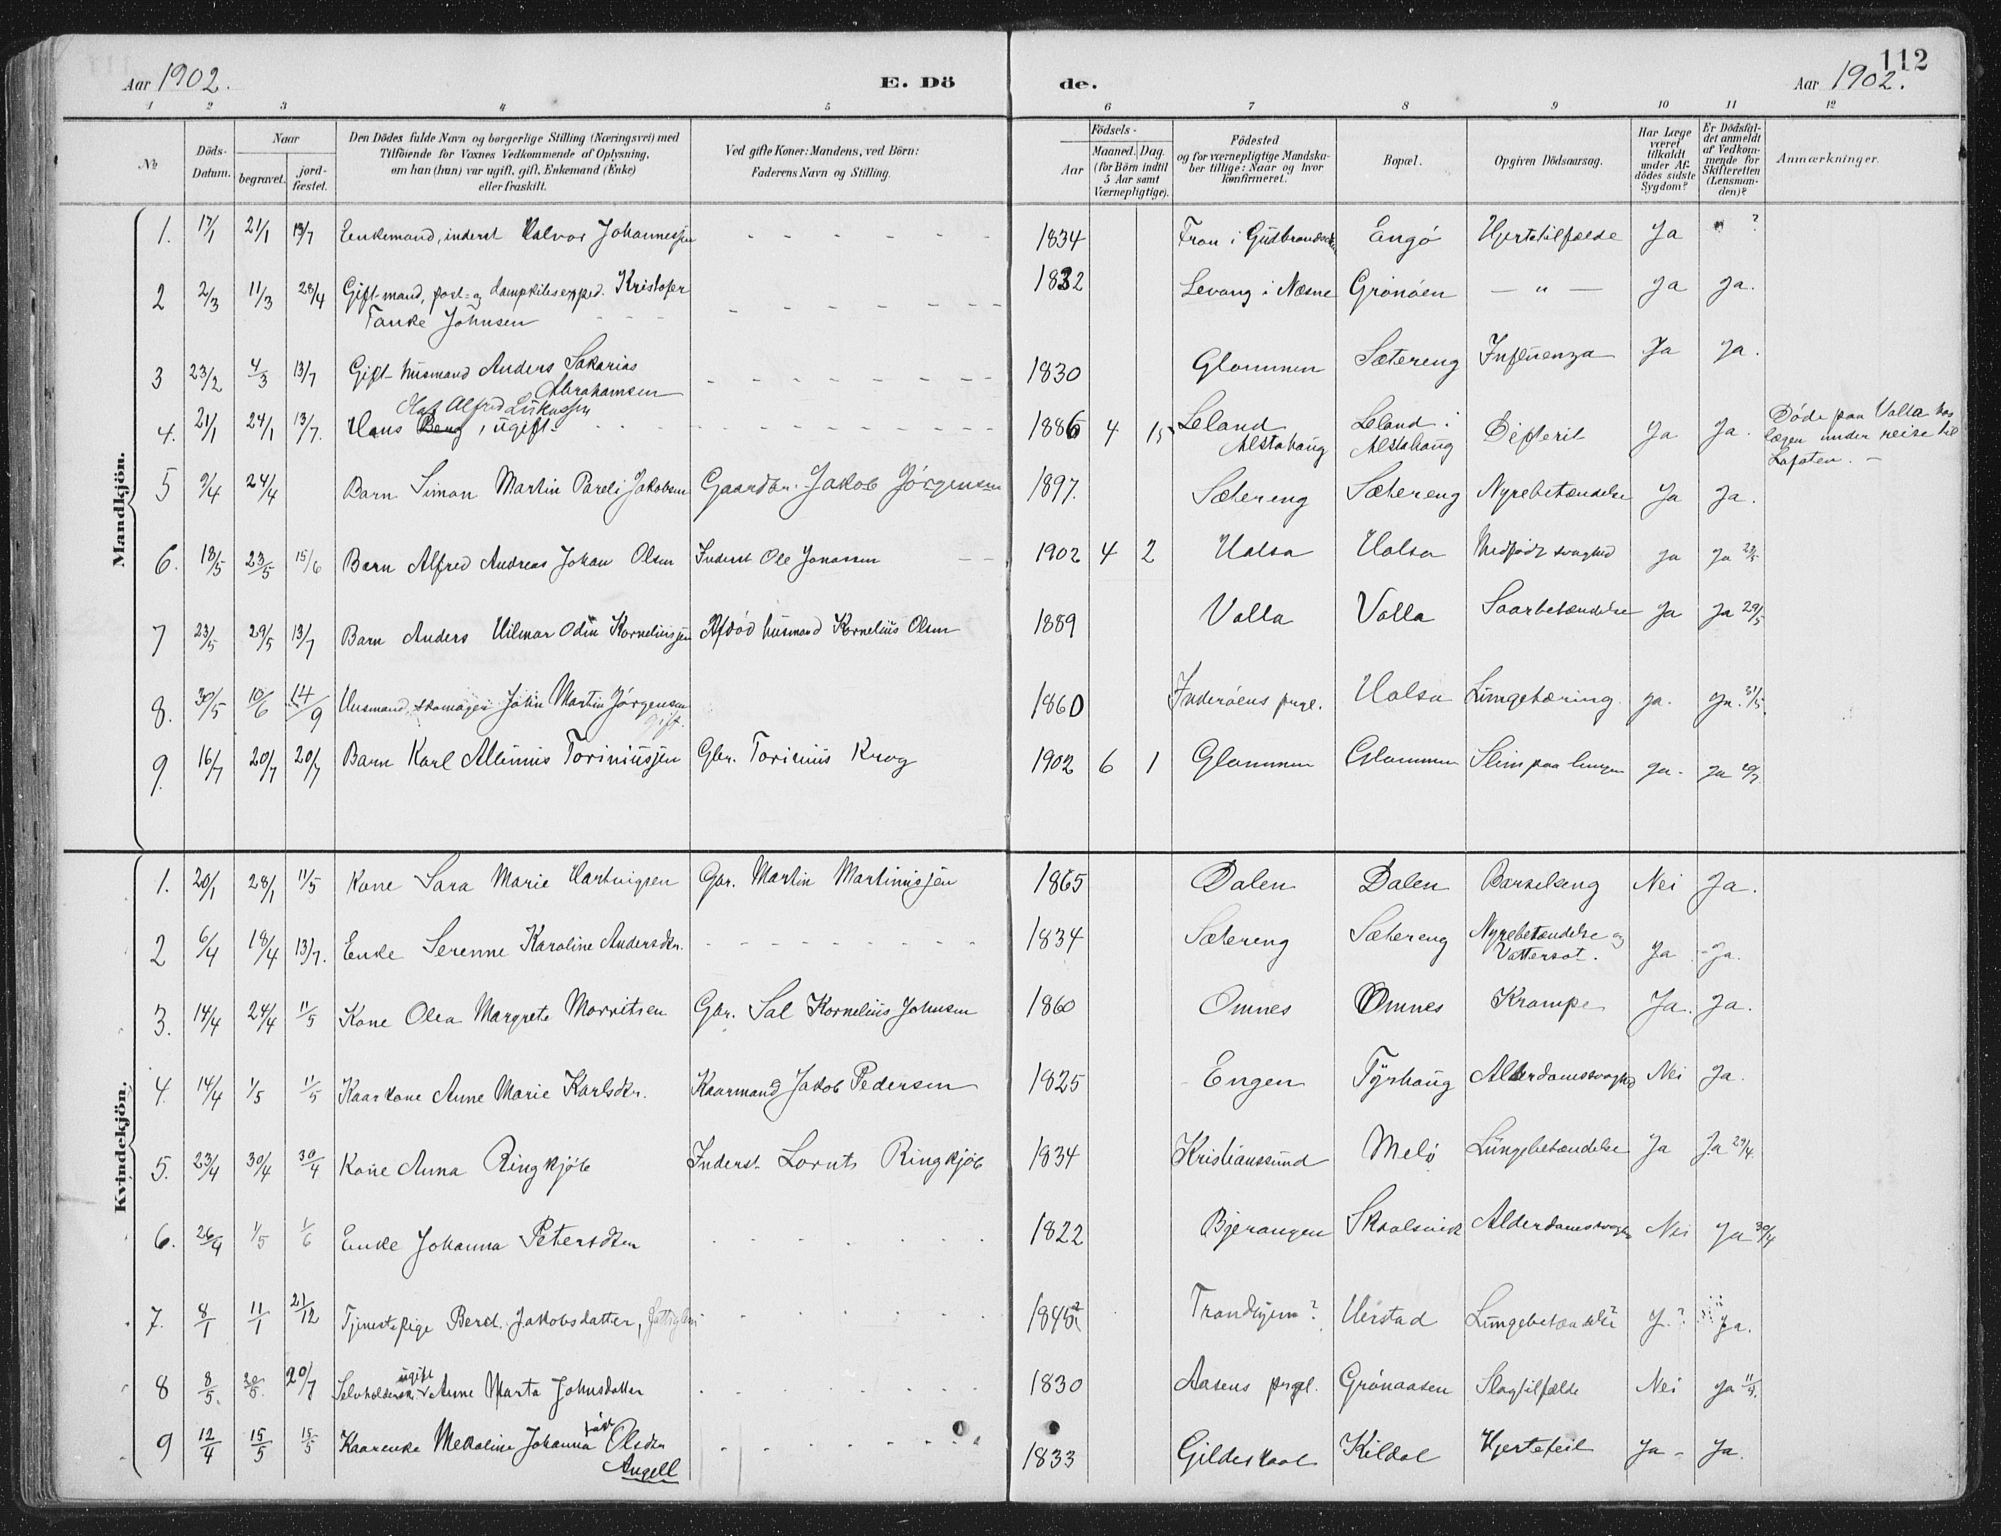 112
Aar 1902.
E. Dö
de.
Aar 1902.
1 2 3 4 5 6 7 8 9 10 11 12
No
Döds-Datum.
Naar
begravet.
jord-fæstet.
Den Dödes fulde Navn og borgerlige Stilling (Næringsvei) med
Tilföiende for Voxnes Vedkommende af Oplysning,
om han (hun) var ugift, gift, Enkemand (Enke)
eller fraskilt.
Ved gifte Koner: Mandens, ved Börn:
Faderens Navn og Stilling.
Födsels-
Aar
Maaned. Dag.
(for Börn indtil
5 Aar samt
Værnepligtige).
Födested
og for værnepligtige Mandska-
ber tillige: Naar og hvor
konfirmeret.
Bopæl.
Opgiven Dödsaarsag.
Har Læge
været
tilkaldt
under Af-
dödes sidste
Sygdom?
Er Dödsfal-
det anmeldt
af Vedkom-
mende for
Skifteretten
(Lensman-
den)?
Anmærkninger.
Mandkjön.
1. 17/1 21/1 13/7 Enkemand, inderst Halvor Johannessen 1834 Fron i Gudbrandsdalen Engö Hjertetilfælde Ja ?
2 2/3 11/3 28/4 Gift mand, post- og dampskibsexped. Kristofer 1832 Levang i Næsne Grönöen — " — Ja Ja.
Tanke Johnsen
3 23/2 4/3 13/7 Gift husmand Anders Sakarias 1830 Glommen Sætereng Influenza Ja Ja.
Abrahamsen
Olaf Alfred Lukassen
4. 21/1 24/1 13/7. Hans Berg, ugift 1886 4 15 Leland Alstahaug Leland i Alstahaug Difterit Ja Ja. Döde paa Valla hos
lægen under reise til
Lofoten. —
5 9/4 24/4 Barn Simon Martin Pareli Jakobsen Gaardbr. Jakob Jörgensen 1897. Sætereng Sætereng Nyrebetændelse Ja Ja.
6. 18/5 23/5 15/6 Barn Alfred Andreas Johan Olsen Inderst Ole Jonassen 1902 4 2 Halsa Halsa Medfödt svaghed Ja Ja 23/5
7 23/5 29/5 13/7 Barn Anders Hilmar Odin Kornelius.sen Afdöd husmand Kornelius Olsen 1889 Valla Valla Saarbetændelse Ja Ja 29/5
8. 30/5 10/6 14/9 Husmand, skomager John Martin Jörgensen 1860 Inderöens prgl. Halsa Lungetæring Ja. Ja. 31/5.
gift.
9. 16/7 20/7 20/7 Barn Karl Albinus Toriniussen Gbr. Torinius Krog 1902 6 1 Glommen Glommen Slim paa lungen Ja. Ja 20/7.
Kvindekjön.
1. 20/1 28/1 11/5 Kone Sara Marie Hartvigsen Gbr. Martin Martinussen 1865 Dalen Dalen Barselseng Nei Ja.
2 6/4 18/4 13/7. Enke Serenne Karoline Andersdtr. 1834 Sætereng Sætereng Nyrebetændelse og Vattersot. Ja Ja.
3. 14/4 24/4 11/5 Kone Olea Margrete Morritsen Gbr. Sal Kornelius Johnsen 1860 Omnes Omnes Krampe Ja. Ja.
4. 14/4 1/5 11/5 Kaarkone Anne Marie Karlsdtr. Kaarmand Jakob Pedersen 1825 Engen Tyshaug Alderdomssvaghed Nei Ja.
5. 23/4 30/4 30/4 Kone Anna Ringkjöb Inderst Lornts Ringkjöb 1834 Kristianssund Melö Lungebetændelse Ja Ja 29/4.
6. 26/4 1/5 1/6 Enke Johanna Petersdtr 1822 Bjerangen Skaalsvik Alderdomssvaghed Nei Ja 30/4
7. 8/1 11/1 21/12 Tjenestepige Beret Jakobsdatter, fattiglem 1845 Trondhjem? Herstad Lungebetændelse? J.? Ja.
8 8/5. 20/5. 20/7 Selvholderske ugift Anne Marta Johnsdatter 1830 Aasens prgl. Grönaasen Slagtilfælde Nei Ja 11/5.
9 12/4 15/5 15/5 Kaarenke Mekoline Johanna född Olsdtr 1833 Gildeskaal Kildal Hjertefeil Ja - Ja.
Angell